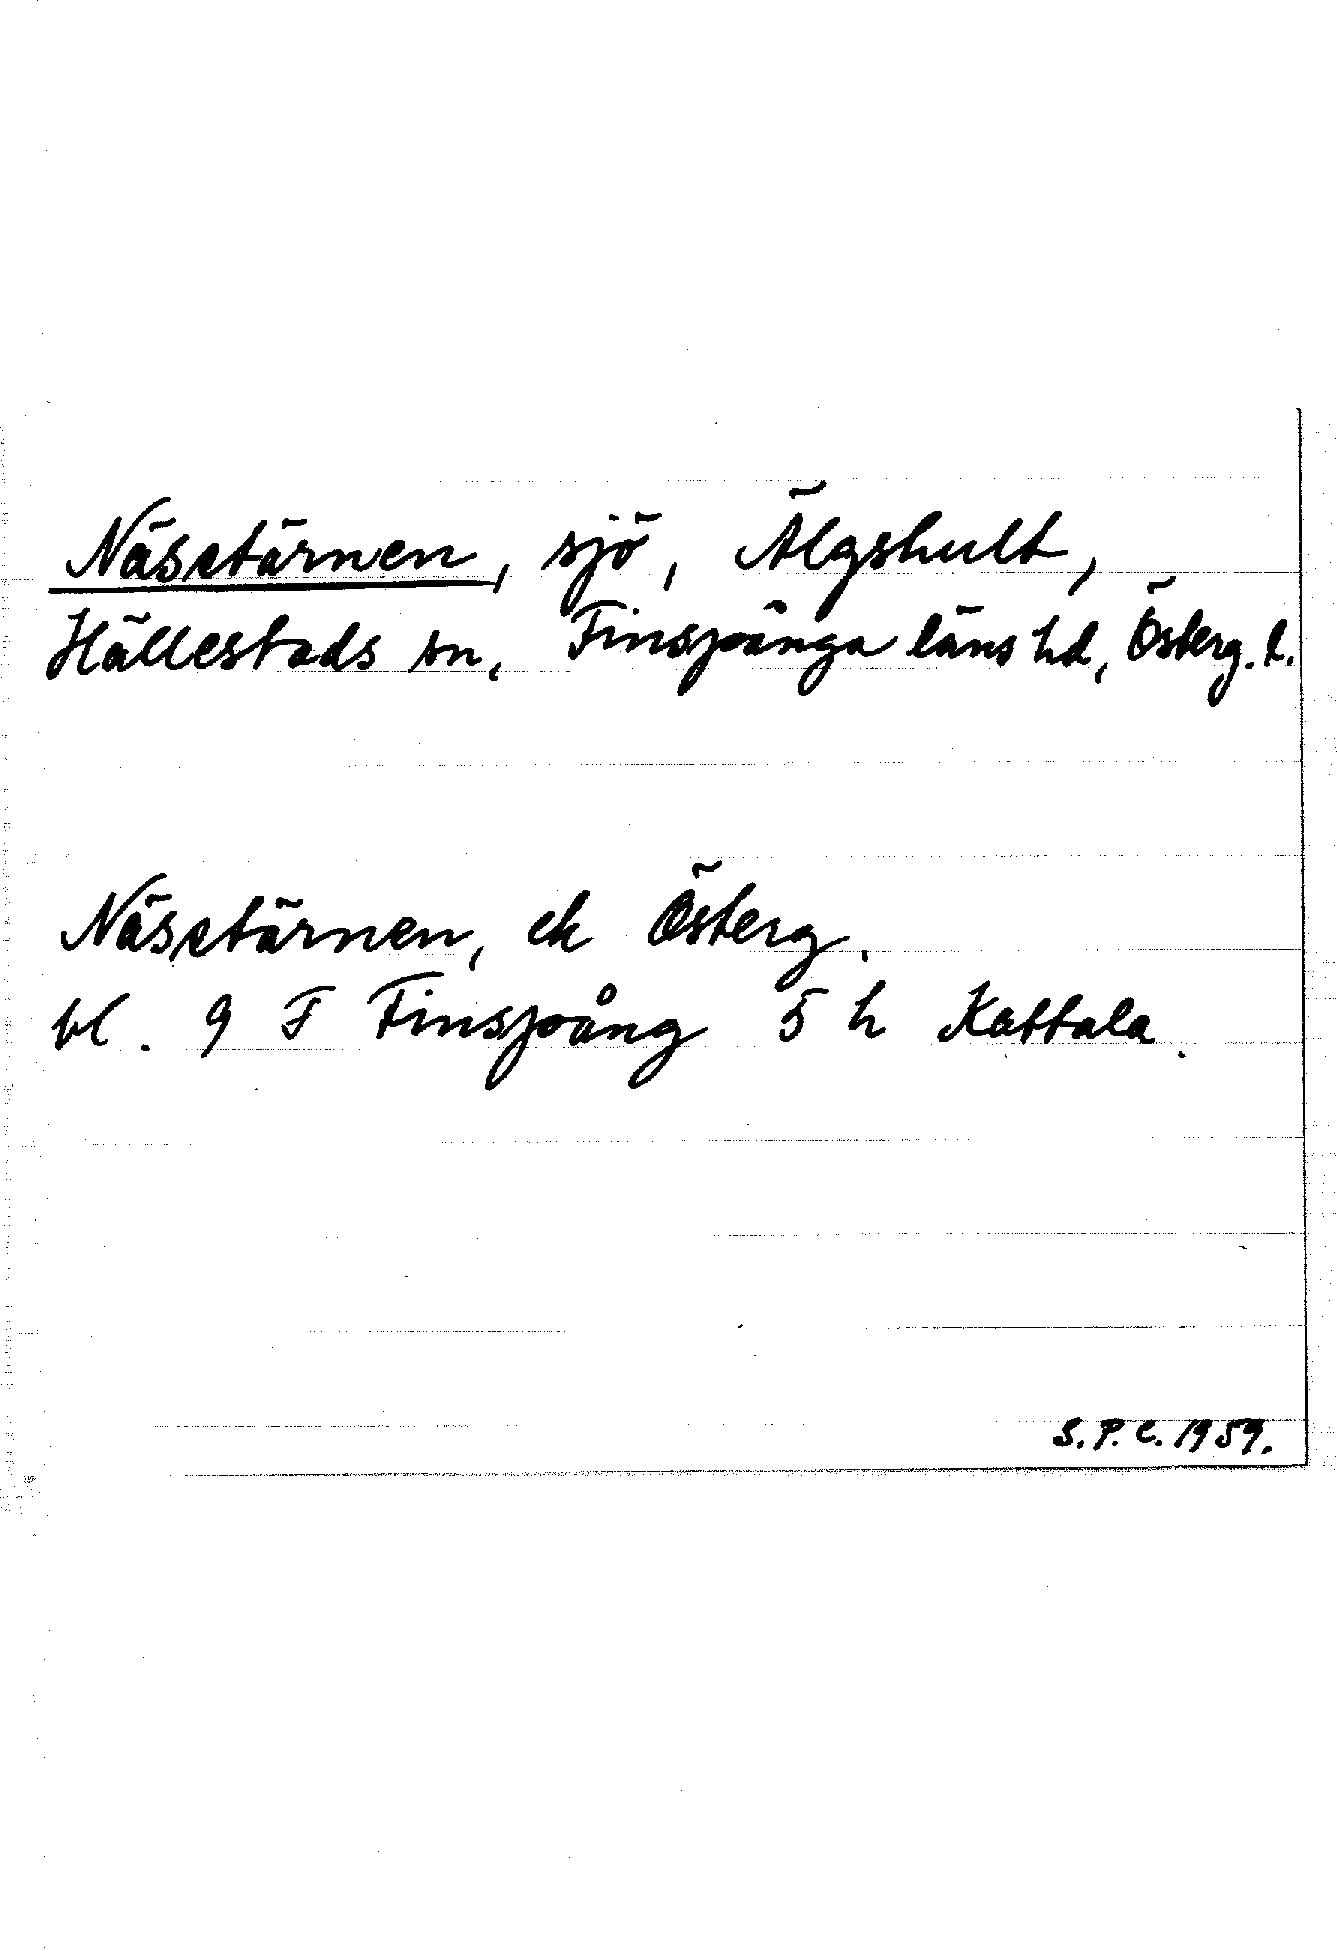 Näsetärnen, sjö, Älgshult,
Hällestads sn, Finspånga läns hd, Österg. l.
Näsetärnen, ek Österg.
bl. 9 F Finspång 5 h Kattala.
S.P.C. 1959.